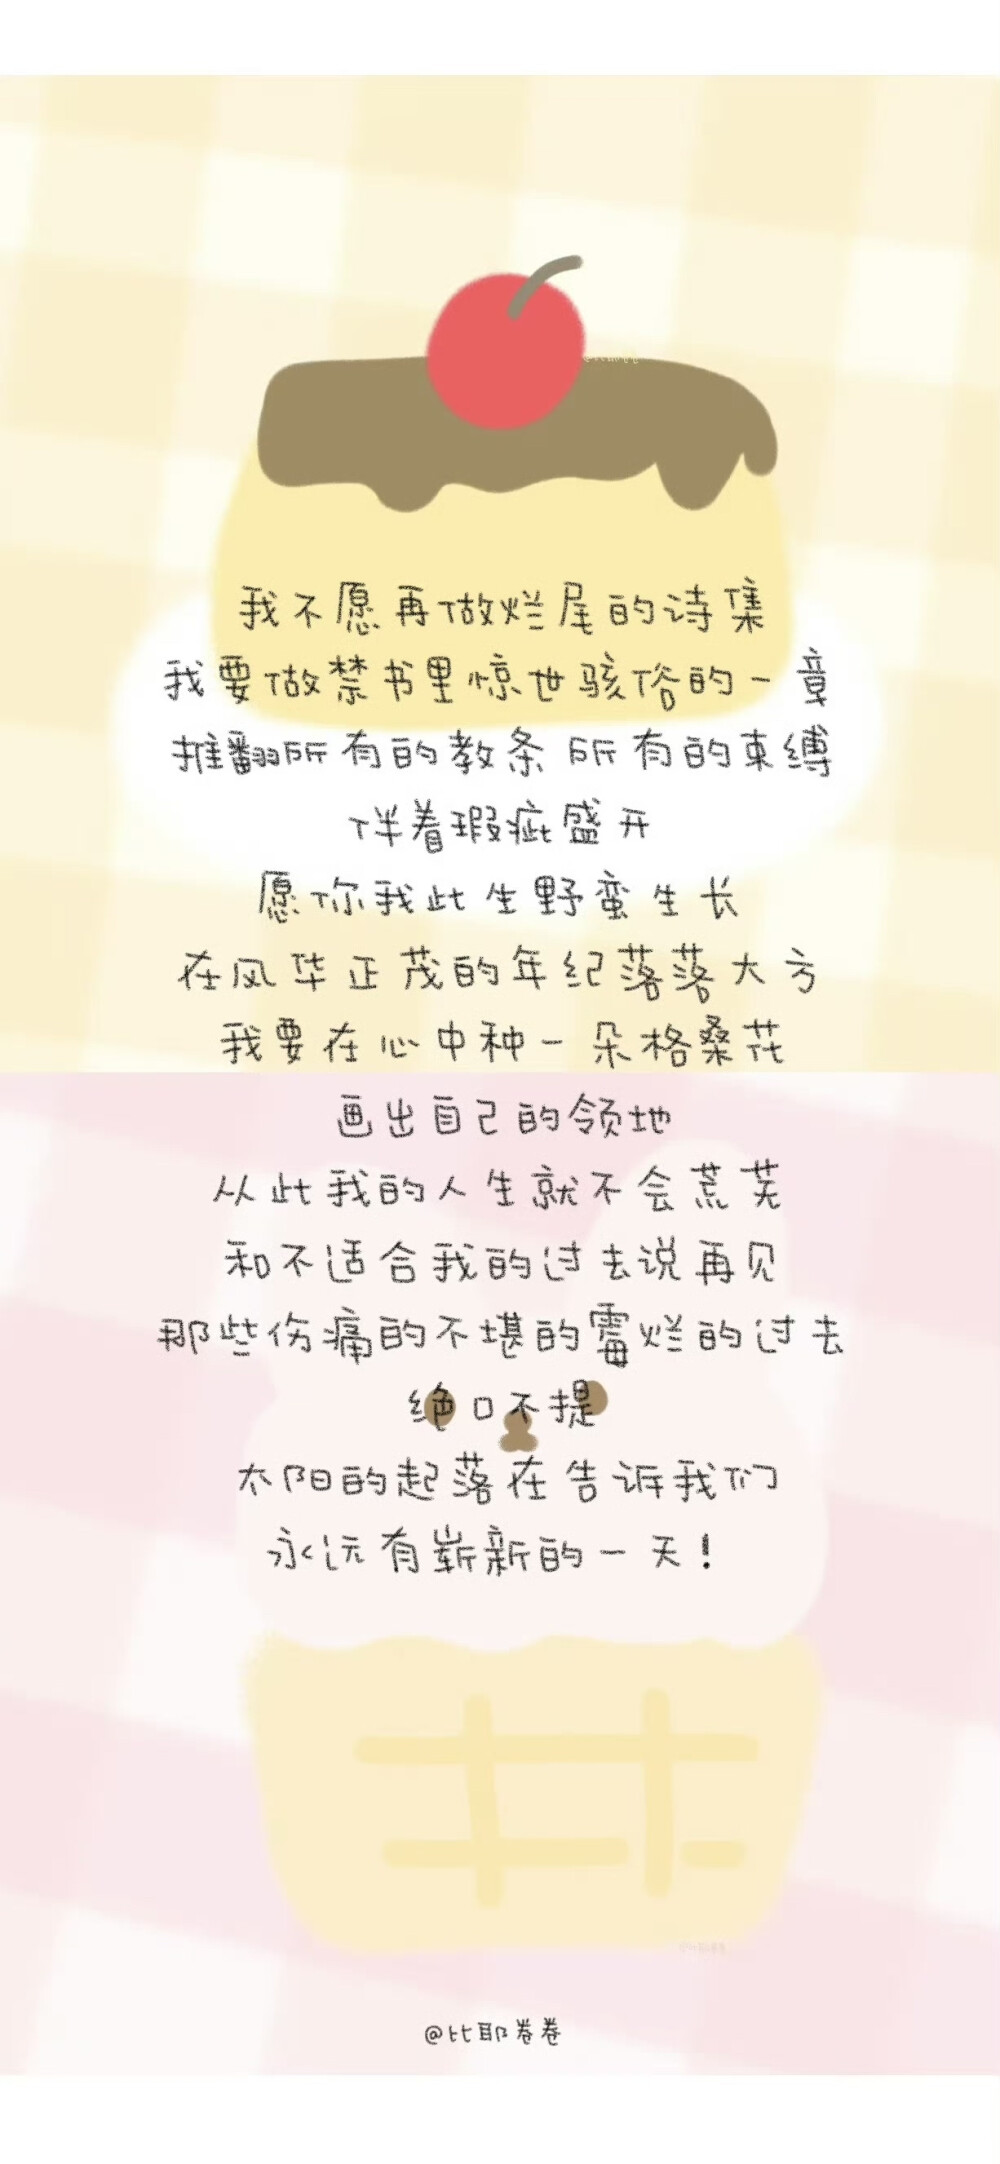 我不愿再做烂尾的诗集
我要做禁书里惊世骇俗的一章
推翻所有的教条 所有的束缚
伴着瑕疵盛开
愿你我此生野蛮生长
在风华正茂的年纪落落大方
我要在心中种一朵格桑花
画出自己的领地
从此我的人生就不会荒芜
和不适合我的过去说再见
那些伤痛的不堪的霉烂的过去
绝口不提
太阳的起落在告诉我们
永远有崭新的一天!
@比耶卷卷